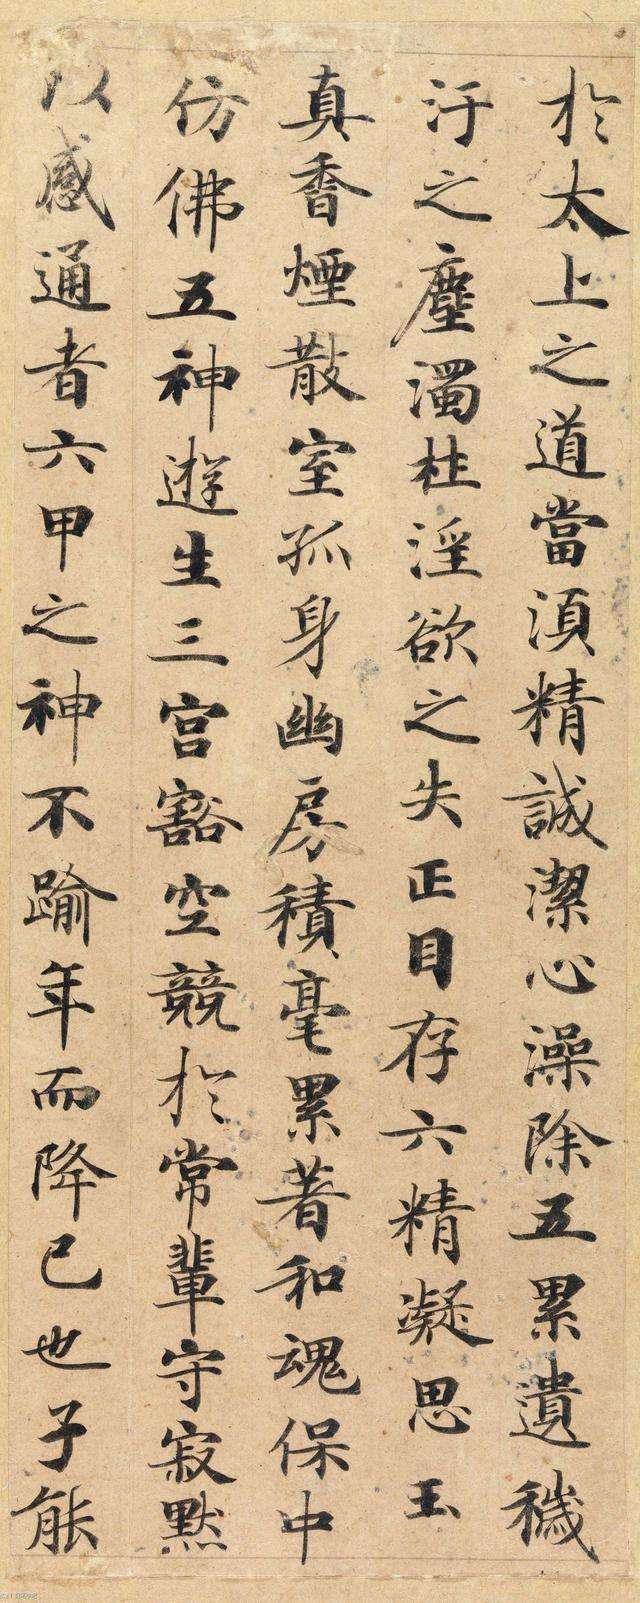 於太上之道當湏精誠潔心澡除五累遺穢
汙之塵濁杜淫欲之失正目存六精凝思玉
真香煙散室孤身幽房積毫累著和魂保中
仿佛五神遊生三宮豁空競於常輩守寂黙
以感通者六甲之神不踰年而降已也子能